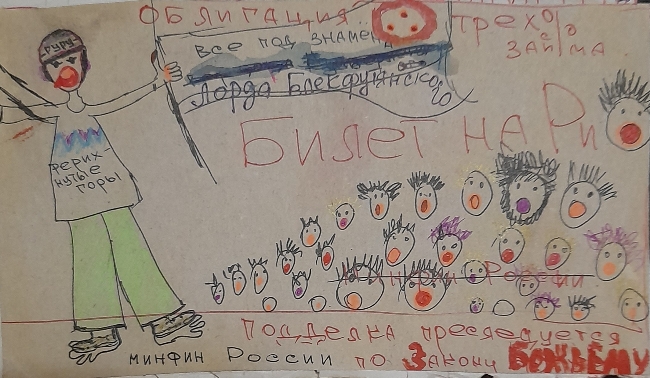 ОБЛИГАЦИЯ ТРЕХ%
ЗАЙМА
ВСЕ ПОД ЗНАМЕНА
Лорда Блекфуинского
ГУРУ
Билет на Рио
РЕРИХ
НУТЫЕ
ГОРЫ
России
ПОДДЕЛКА ПРЕСЛЕДУЕТСЯ
МИНФИН России ПО ЗАКОНУ БОЖЬЕМУ